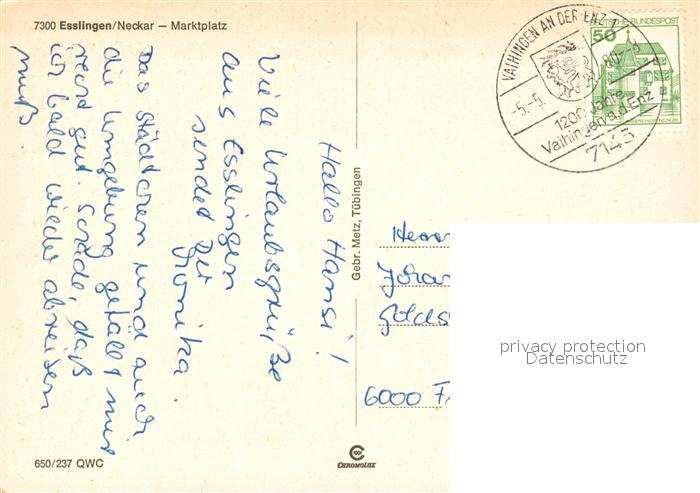 7300 Esslingen/Neckar — Marktplatz
Hallo Hansi!
Viele Urlaubsgrüße
aus Esslingen
sendet Dir
Monika.
Das Städtchen und auch
die Umgebung gefällt mir
recht gut. Schade, daß
ich bald wieder abreisen
muß.
650/237 QWC
Gebr. Metz, Tübingen
CHROMOLUX
VAIHINGEN AN DER ENZ 1
-5.-5.
80-
1200 Jahre
Vaihingen a.d. Enz
7143
DEUTSCHE BUNDESPOST
50
Herrn
6000 F
privacy protection
Datenschutz